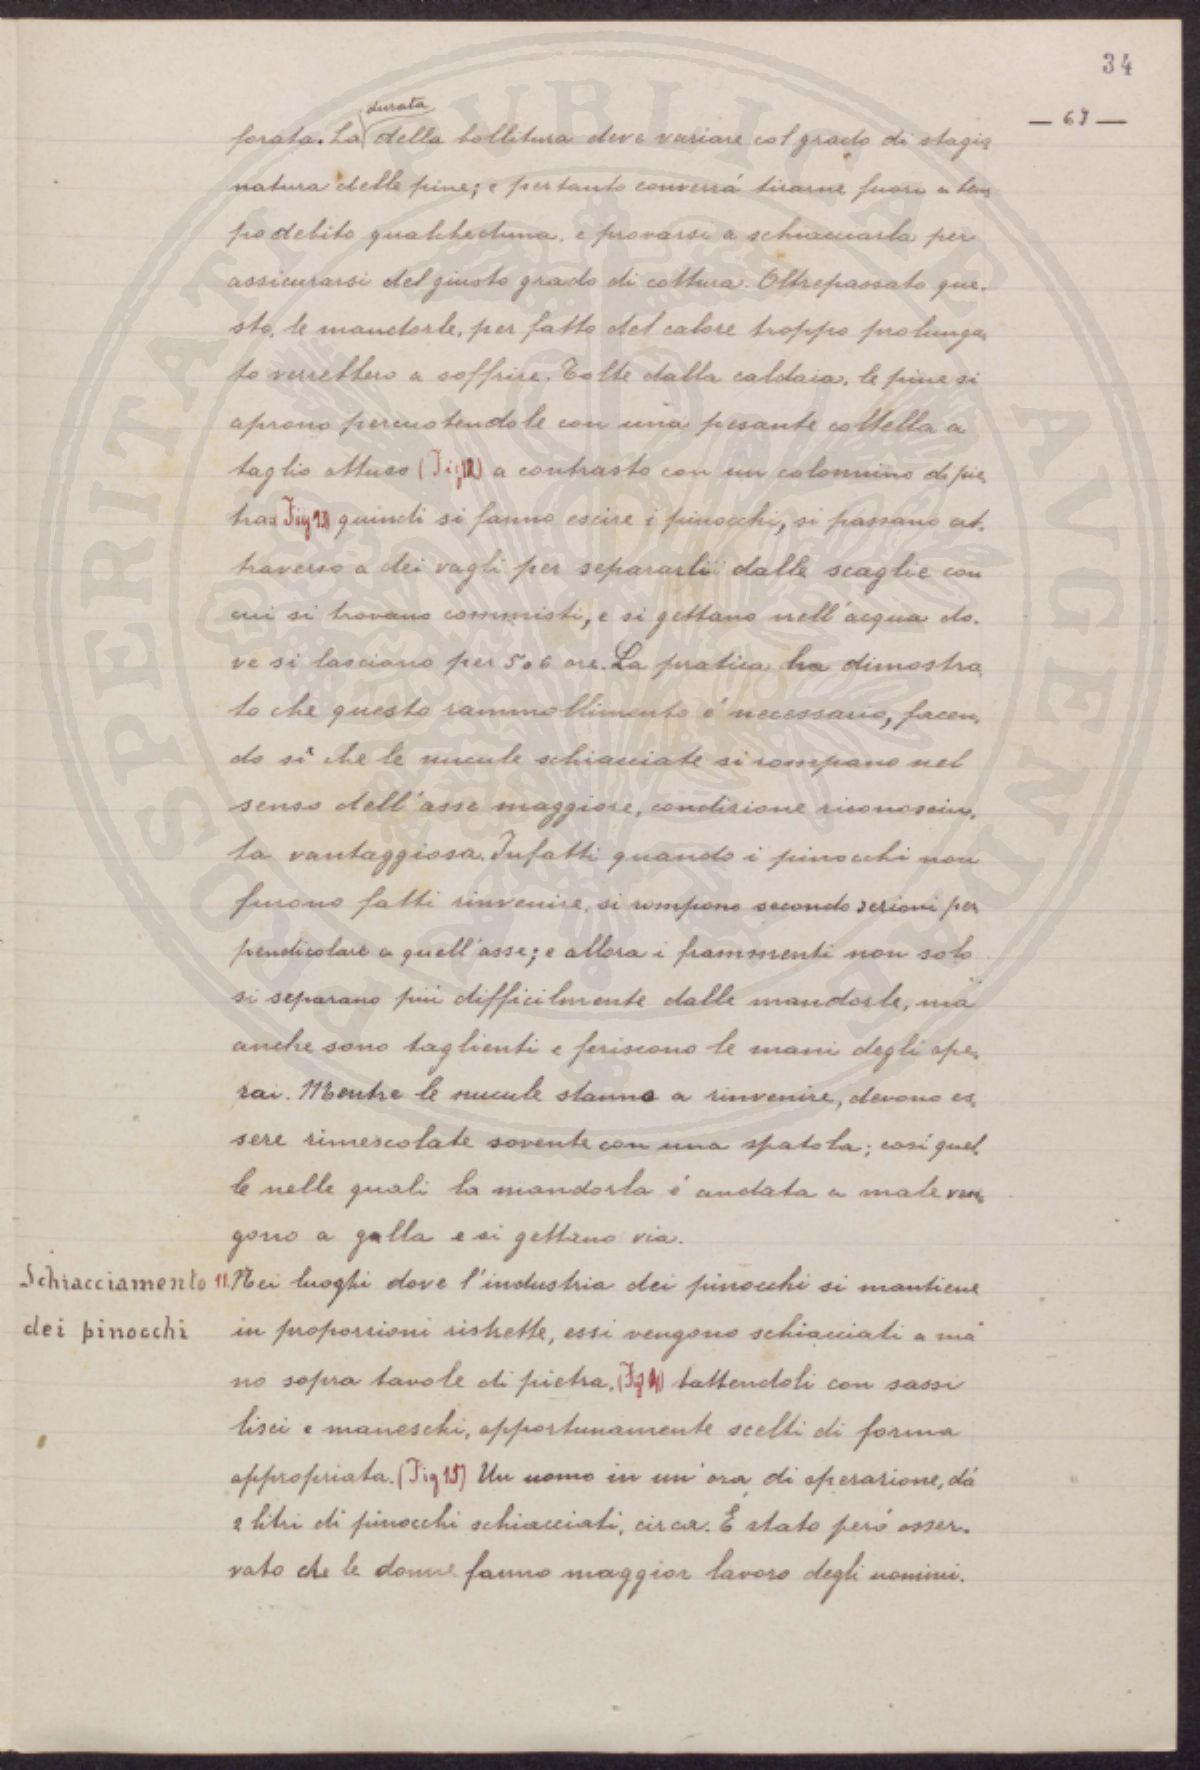 34
— 67 —
durata
forata. La della bollitura deve variare col grado di stagio
natura delle pine; e pertanto converrá tirarne fuori a tem
po debito qualcheduna, e provarsi a schiacciarla per
assicurarsi del giusto grado di cottura. Oltrepassato que-
sto, le mandorle, per fatto del calore troppo prolunga
to verrebbero a soffrire. Tolte dalla caldaia, le pine si
aprono percuotendole con una pesante coltella a
taglio ottuso (Fig 12) a contrasto con un colonnino di pie
tra (Fig 13) quindi si fanno escire i pinocchi, si passano at-
traverso a dei vagli per separarli dalle scaglie con
cui si trovano commisti, e si gettano nell'acqua do-
ve si lasciano per 5 o 6 ore. La pratica ha dimostra
to che questo rammollimento é necessario, facen-
do sì che le nucule schiacciate si rompano nel
senso dell'asse maggiore, condizione riconosciu-
ta vantaggiosa. Infatti quando i pinocchi non
furono fatti rinvenire, si rompono secondo sezioni per
pendicolare a quell'asse; e allora i frammenti non solo
si separano piú difficilmente dalle mandorle, ma
anche sono taglienti e feriscono le mani degli ope-
rai. Mentre le nucule stanno a rinvenire, devono es-
sere rimescolate sovente con una spatola; cosí quel-
le nelle quali la mandorla é andata a male ven-
gono a galla e si gettano via.
Schiacciamento 11. Nei luoghi dove l'industria dei pinocchi si mantiene
dei pinocchi in proporzioni ristrette, essi vengono schiacciati a ma
no sopra tavole di pietra, (Fig 14) battendoli con sassi
lisci e maneschi, opportunamente scelti di forma
appropriata. (Fig 15) Un uomo in un'ora di operazione, dá
2 litri di pinocchi schiacciati, circa. É stato peró osser-
vato che le donne fanno maggior lavoro degli uomini.